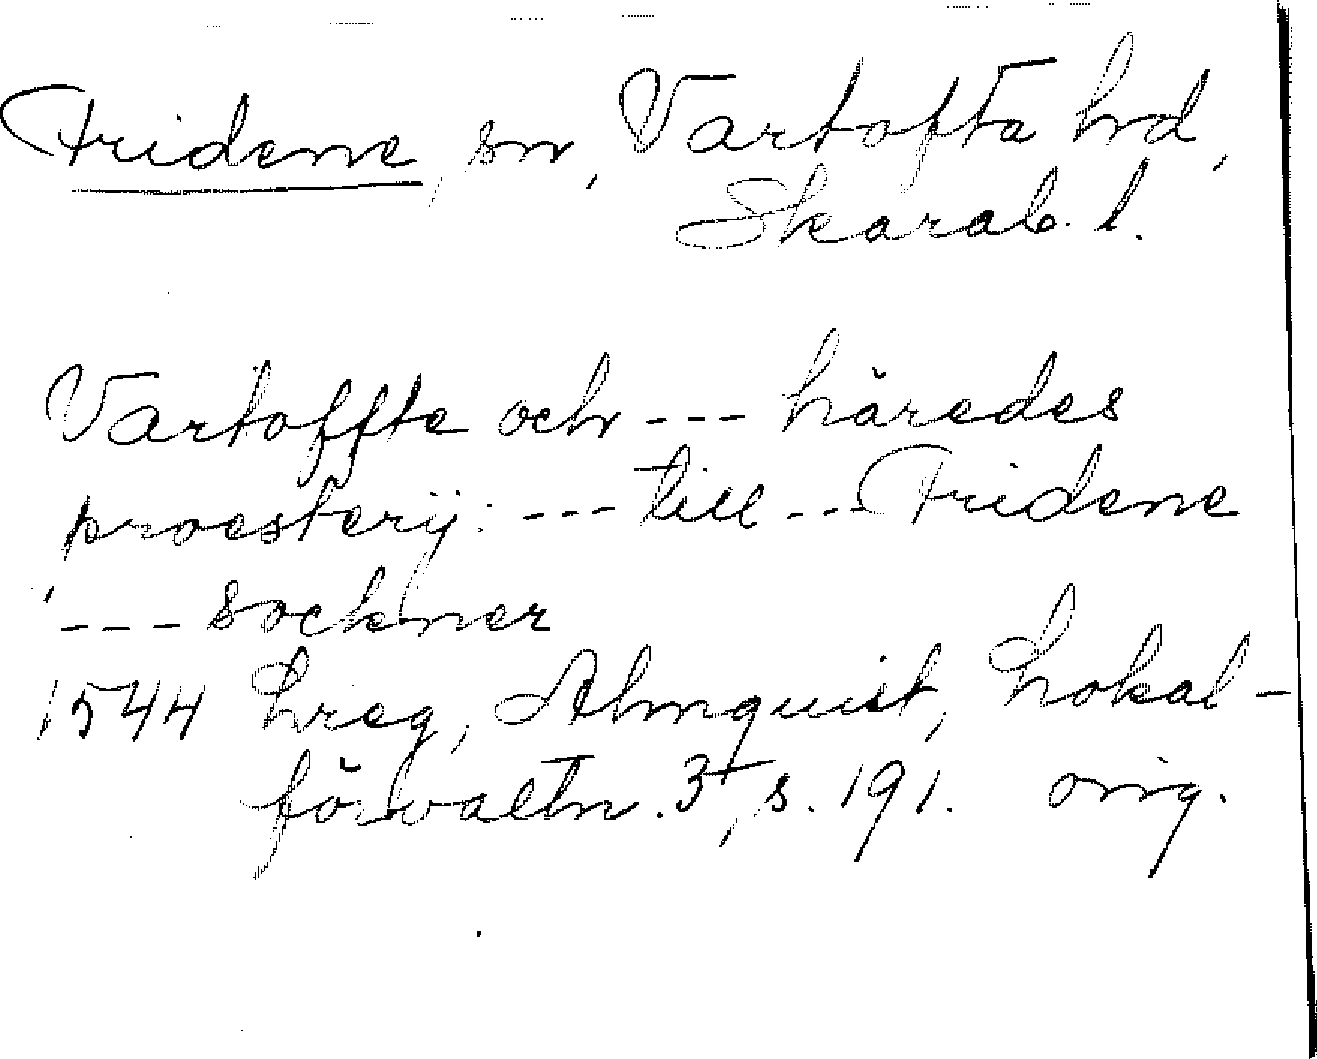 Fridene, sn, Vartofta hd,
Skarab. l.
Vartoffte och --- häredes
proesterij: --- till --- Fridene
--- sockner
1544 hreg, Almquist, Lokal-
förvaltn. 3⁺, s. 191. orig.